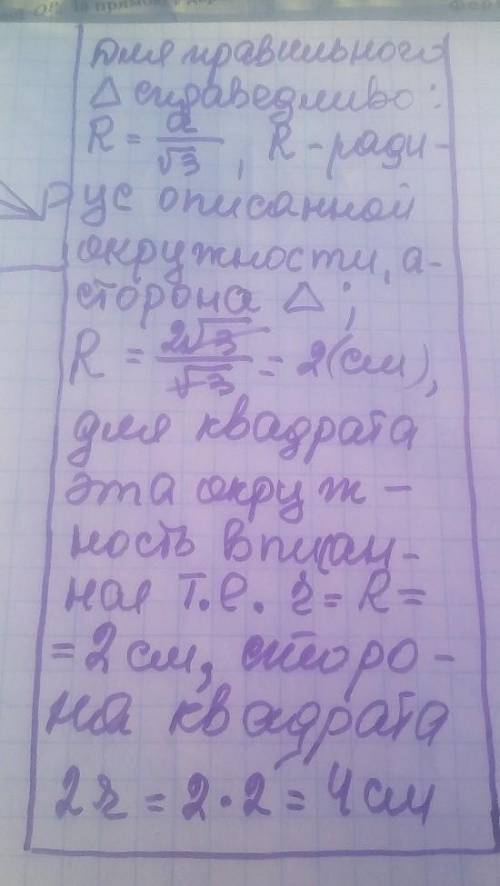 для правильного
△ справедливо:
R = a/√3, R - ради-
ус описанной
окружности, а-
сторона △;
R = 2√3/√3 = 2(см),
для квадрата
эта окруж-
ность вписан-
ная т.е. r = R =
= 2 см, сторо-
на квадрата
2r = 2·2 = 4 см